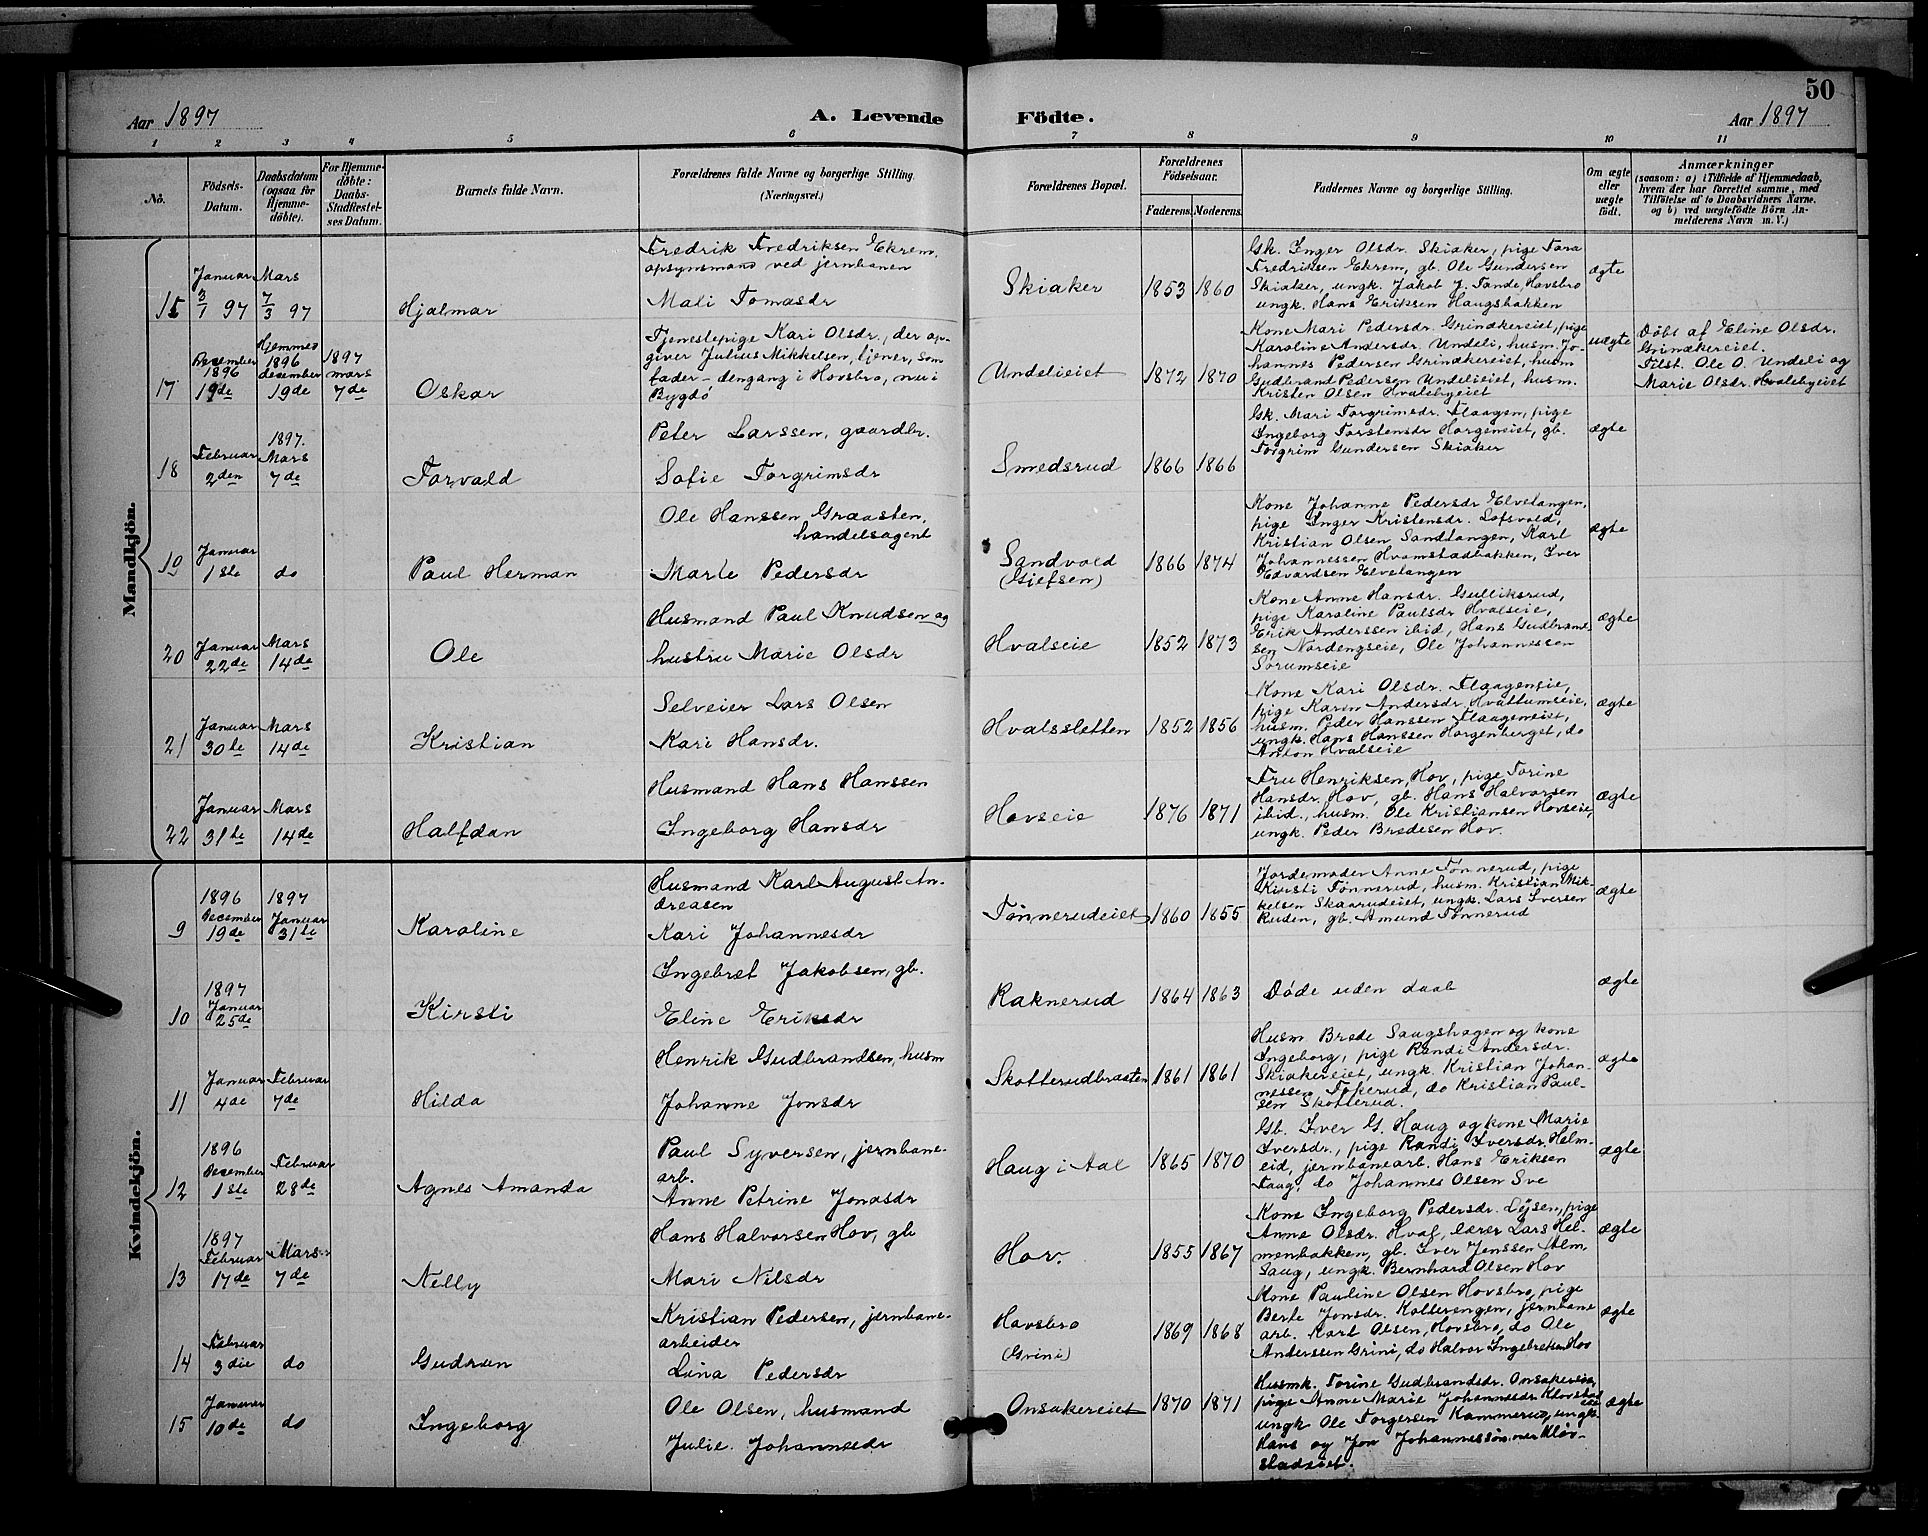 50
Aar 1897
A. Levende Födte.
Aar 1897
1 2 3 4 5 6 7 8 9 10 11
No.
Födsels-
Datum.
Daabsdatum
(ogsaa för
Hjemme-
döbte).
For Hjemme-
döbte:
Daabs-
Stadfæstel-
ses Datum.
Barnets fulde Navn.
Forældrenes fulde Navne og borgerlige Stilling.
(Næringsvei.)
Forældrenes Bopæl.
Forældrenes
Födselsaar.
Faderens. Moderens.
Faddernes Navne og borgerlige Stilling.
Om ægte
eller
uægte
födt.
Anmærkninger
(saasom: a) i Tilfælde af Hjemmedaab,
hvem der har forrettet samme, med
Tilföielse af to Daabsvidners Navne.
og b) ved uægtefödte Börn An-
melderens Navn m. V.)
Mandkjön.
Januar
3/1 97
Mars
7/3 97
Hjalmar
Fredrik Fredriksen Ekrem,
opsynsmand ved jernbanen
Mali Tomasdr
Skiaker
1853 1860
Gk. Inger Olsdr. Skiaker, pige Tora
Fredriksen Ekrem, gb. Ole Gundersen
Skiaker, ungk. Jakob J. Tande, Hovsbro
ungk. Hans Eriksen Haugsbakken
ægte
17
December
1896
19de
Hjemmed
1896
desember
19de
1897
mars
7de
Oskar
Tjenestepige Kari Olsdr., der op-
giver Julius Mikkelsen, tjener, som
fader - dengang i Hovsbro, nu i
Bygdö
Undelieiet
1872 1870
Kone Mari Pedersdr. Grinakereiet, pige
Karoline Andersdr. Undeli, husm. Jo-
hannes Pedersen Grinakereiet, husm
Gudbrand Pedersen Undelieiet, husm.
Kristen Olsen Hvalebyeiet
uægte
Döbt af Eline Olsdr.
Grinakereiet.
Tilst. Ole O. Undeli og
Marie Olsdr. Hvalebyeiet
18
Februar
2den
1897.
Mars
7de
Torvald
Peter Larssen, gaardbr.
Sofie Torgrimsdr
Smedsrud
1866 1866
Gk. Mari Torgrimsdr. Flaagen, pige
Ingeborg Torstensdr Horgeneiet, gb.
Torgrim Gundersen Skiaker
ægte
19
Januar
1ste
do
Paul Herman
Ole Hanssen Graasten,
handelsagent
Marte Pedersdr
Sandvold
(Gjefsen)
1866 1874
Kone Johanne Pedersdr Elvetangen,
pige Inger Kristensdr. Lofsvold,
Kristian Olsen Sandtangen, Karl
Johannessen Hvamstadbakken, Iver
Edvardsen Elvetangen
ægte
20
Januar
22de
Mars
14de
Ole
Husmand Paul Knudsen og
hustru Marie Olsdr
Hvalseie
1852 1873
Kone Anne Hansdr. Gulliksrud,
pige Karoline Paulsdr Hvalseie,
Erik Anderssen ibid, Hans Gudbrand-
sen Nordengseie, Ole Johannessen
Sörumseie
ægte
21
Januar
30te
Mars
14de
Kristian
Selveier Lars Olsen
Kari Hansdr.
Hvalssletten
1852 1856
Kone Kari Olsdr. Flaageneie,
pige Karen Andersdr Hvattumeie,
husm. Peder Hanssen Flaageneiet,
ungk. Hans Hanssen Horgenberget, do
Anton Hvalseie
ægte
22
Januar
31te
Mars
14de
Halfdan
Husmand Hans Hanssen
Ingeborg Hansdr
Hovseie
1876 1871
Fru Henriksen, Hov, pige Torine
Hansdr. Hov, gb. Hans Halvorsen
ibid., husm. Ole Kristiansen Hovseie,
ungk. Peder Bredesen Hov.
ægte
Kvindekjön.
9
1896
December
19de
1897
Januar
31te
Karoline
Husmand Karl August An-
dreasen
Kari Johannesdr
Tönnerudeiet
1860 1855
Jordemoder Anne Tönnerud, pige
Kirsti Tönnerud, husm. Kristian Mik-
kelsen Skaarudeiet, ungk. Lars Iversen
Ruden, gb. Amund Tönnerud
ægte
10
1897
Januar
25de
Kirsti
Ingebret Jakobsen, gb.
Eline Eriksdr
Raknerud
1864 1863
Döde uden daab
ægte
11
Januar
4de
Februar
7de
Hilda
Henrik Gudbrandsen, husm
Johanne Jonsdr
Skotterudbraaten
1861 1861
Husm Brede Saugshagen og kone
Ingeborg, pige Randi Andersdr.
Skiakereiet, ungk. Kristian Johan-
nessen Tokerud, do Kristian Paul-
sen Skotterud.
ægte
12
1896
December
1ste
Februar
28de
Agnes Amanda
Paul Syversen, jernbane-
arb.
Anne Petrine Jonasdr
Haug i Aal
1865 1870
Gb. Iver G. Haug og kone Marie
Iversdr., pige Randi Iversdr. Helm-
eid, jernbanearb. Hans Eriksen
Haug, do Johannes Olsen Sve
ægte
13
1897
Februar
17de
Mars
7de
Nelly
Hans Halvorsen Hov, gb
Mari Nilsdr
Hov.
1855 1867
Kone Ingeborg Pedersdr. Lysen, pige
Anne Olsdr. Hval, lærer Lars Hel-
menbakken, gb. Iver Jenssen Alm,
Saug, ungk. Bernhard Olsen Hov
ægte
14
Februar
3die
do
Gudrun
Kristian Pedersen, jernbane-
arbeider
Lina Pedersdr
Hovsbro
(Grini)
1869 1868
Kone Pauline Olsen Hovsbro, pige
Berte Jonsdr. Kolterengen, jernbane
arb. Karl Olsen, Hovsbro, do Ole
Anderssen Grini, do Halvor Ingebretsen Hov
ægte
15
Januar
10de
do
Ingeborg
Ole Olsen, husmand
Julie Johannesdr
Onsakereiet
1870 1871
Husmk. Torine Gudbrandsdr. Onsakereie,
pige Anne Marie Johannesdr Klovstad
ungk Ole Torgersen Kammerud, ungk.
Hans og Jon Johannessönner Klöv-
stadeiet.
ægte